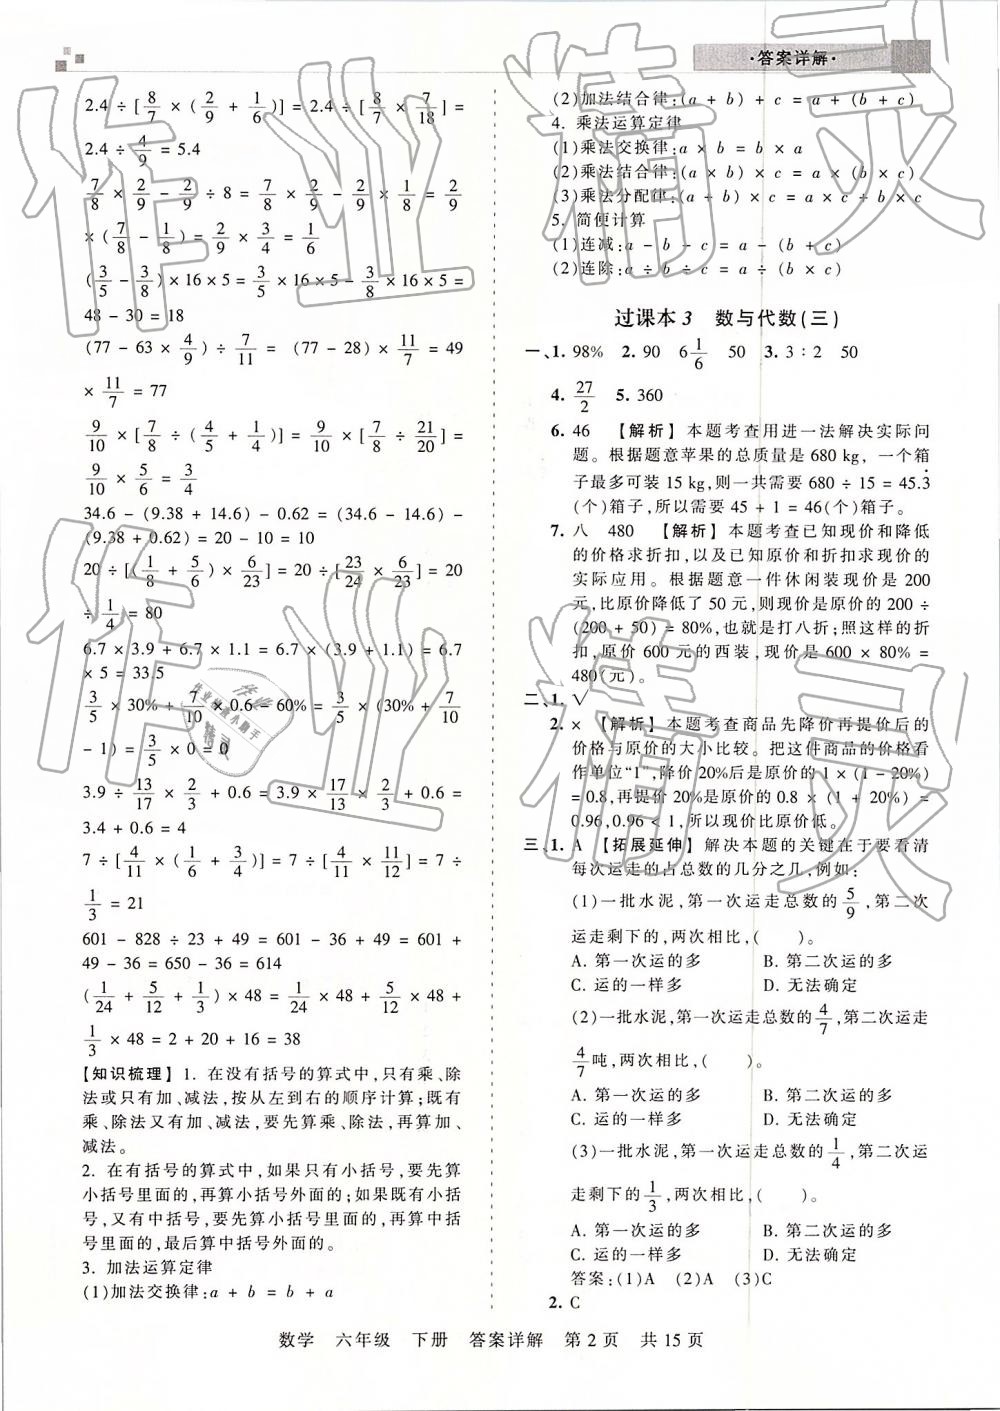 ·答案详解·
2.4 ÷ [8/7 × (2/9 + 1/6)] = 2.4 ÷ [8/7 × 7/18] =
2.4 ÷ 4/9 = 5.4
7/8 × 2/9 - 2/9 ÷ 8 = 7/8 × 2/9 - 2/9 × 1/8 = 2/9
× (7/8 - 1/8) = 2/9 × 3/4 = 1/6
(3/5 - 3/8) × 16 × 5 = 3/5 × 16 × 5 - 3/8 × 16 × 5 =
48 - 30 = 18
(77 - 63 × 4/9) ÷ 7/11 = (77 - 28) × 11/7 = 49
× 11/7 = 77
9/10 × [7/8 ÷ (4/5 + 1/4)] = 9/10 × [7/8 ÷ 21/20] =
9/10 × 5/6 = 3/4
34.6 - (9.38 + 14.6) - 0.62 = (34.6 - 14.6) -
(9.38 + 0.62) = 20 - 10 = 10
20 ÷ [(1/8 + 5/6) × 6/23] = 20 ÷ [23/24 × 6/23] = 20
÷ 1/4 = 80
6.7 × 3.9 + 6.7 × 1.1 = 6.7 × (3.9 + 1.1) = 6.7
× 5 = 33.5
3/5 × 30% + 7/10 × 0.6 - 60% = 3/5 × (30% + 7/10
- 1) = 3/5 × 0 = 0
3.9 ÷ 13/17 × 2/3 + 0.6 = 3.9 × 17/13 × 2/3 + 0.6 =
3.4 + 0.6 = 4
7 ÷ [4/11 × (1/6 + 3/4)] = 7 ÷ [4/11 × 11/12] = 7 ÷
1/3 = 21
601 - 828 ÷ 23 + 49 = 601 - 36 + 49 = 601 +
49 - 36 = 650 - 36 = 614
(1/24 + 5/12 + 1/3) × 48 = 1/24 × 48 + 5/12 × 48 +
1/3 × 48 = 2 + 20 + 16 = 38
【知识梳理】1. 在没有括号的算式中,只有乘、除
法或只有加、减法,按从左到右的顺序计算;既有
乘、除法又有加、减法,要先算乘、除法,再算加、
减法。
2. 在有括号的算式中,如果只有小括号,要先算
小括号里面的,再算小括号外面的;如果既有小括
号,又有中括号,要先算小括号里面的,再算中括
号里面的,最后算中括号外面的。
3. 加法运算定律
(1)加法交换律:a + b = b + a
(2)加法结合律:(a + b) + c = a + (b + c)
4. 乘法运算定律
(1)乘法交换律:a × b = b × a
(2)乘法结合律:(a × b) × c = a × (b × c)
(3)乘法分配律:(a ÷ b) × c = a × c ÷ b × c
5. 简便计算
(1)连减:a - b - c = a - (b + c)
(2)连除:a ÷ b ÷ c = a ÷ (b × c)
过课本3 数与代数(三)
一、1. 98% 2. 90 6 1/6 50 3. 3:2 50
4. 27/2 5. 360
6. 46 【解析】本题考查用进一法解决实际问
题。根据题意苹果的总质量是 680 kg, 一个箱
子最多可装 15 kg,则一共需要 680 ÷ 15 = 45.3̇
(个)箱子,所以需要 45 + 1 = 46(个)箱子。
7. 八 480 【解析】本题考查已知现价和降低
的价格求折扣,以及已知原价和折扣求现价的
实际应用。根据题意一件休闲装现价是 200
元,比原价降低了 50 元,则现价是原价的 200 ÷
(200 + 50) = 80%,也就是打八折;照这样的折
扣,原价 600 元的西装,现价是 600 × 80% =
480(元)。
二、1. √
2. × 【解析】本题考查商品先降价再提价后的
价格与原价的大小比较。把这件商品的价格看
作单位“1”,降价 20%后是原价的 1 × (1 - 20%)
= 0.8,再提价 20%是原价的 0.8 × (1 + 20%) =
0.96,0.96 < 1,所以现价比原价低。
三、1. A 【拓展延伸】解决本题的关键在于要看清
每次运走的占总数的几分之几,例如:
(1)一批水泥,第一次运走总数的 5/9,第二次
运走剩下的,两次相比,( )。
A. 第一次运的多 B. 第二次运的多
C. 运的一样多 D. 无法确定
(2)一批水泥,第一次运走总数的 4/7,第二次运走
4/7 吨,两次相比,( )。
A. 第一次运的多 B. 第二次运的多
C. 运的一样多 D. 无法确定
(3)一批水泥,第一次运走总数的 1/4,第二次运
走剩下的 1/3,两次相比,( )。
A. 第一次运的多 B. 第二次运的多
C. 运的一样多 D. 无法确定
答案:(1)A (2)A (3)C
2. C
数学 六年级 下册 答案详解 第 2 页 共 15 页
作业精灵
作业精灵